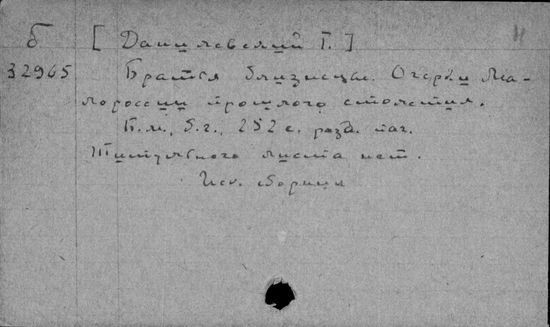 Б [ Данилевский Г. ] И
32965 Братья близнецы. Очерки Ма-
лороссии прошлого столетия.
Б.м., б.г., 252 с. разд. паг.
Титульного листа нет.
Исх. сборник